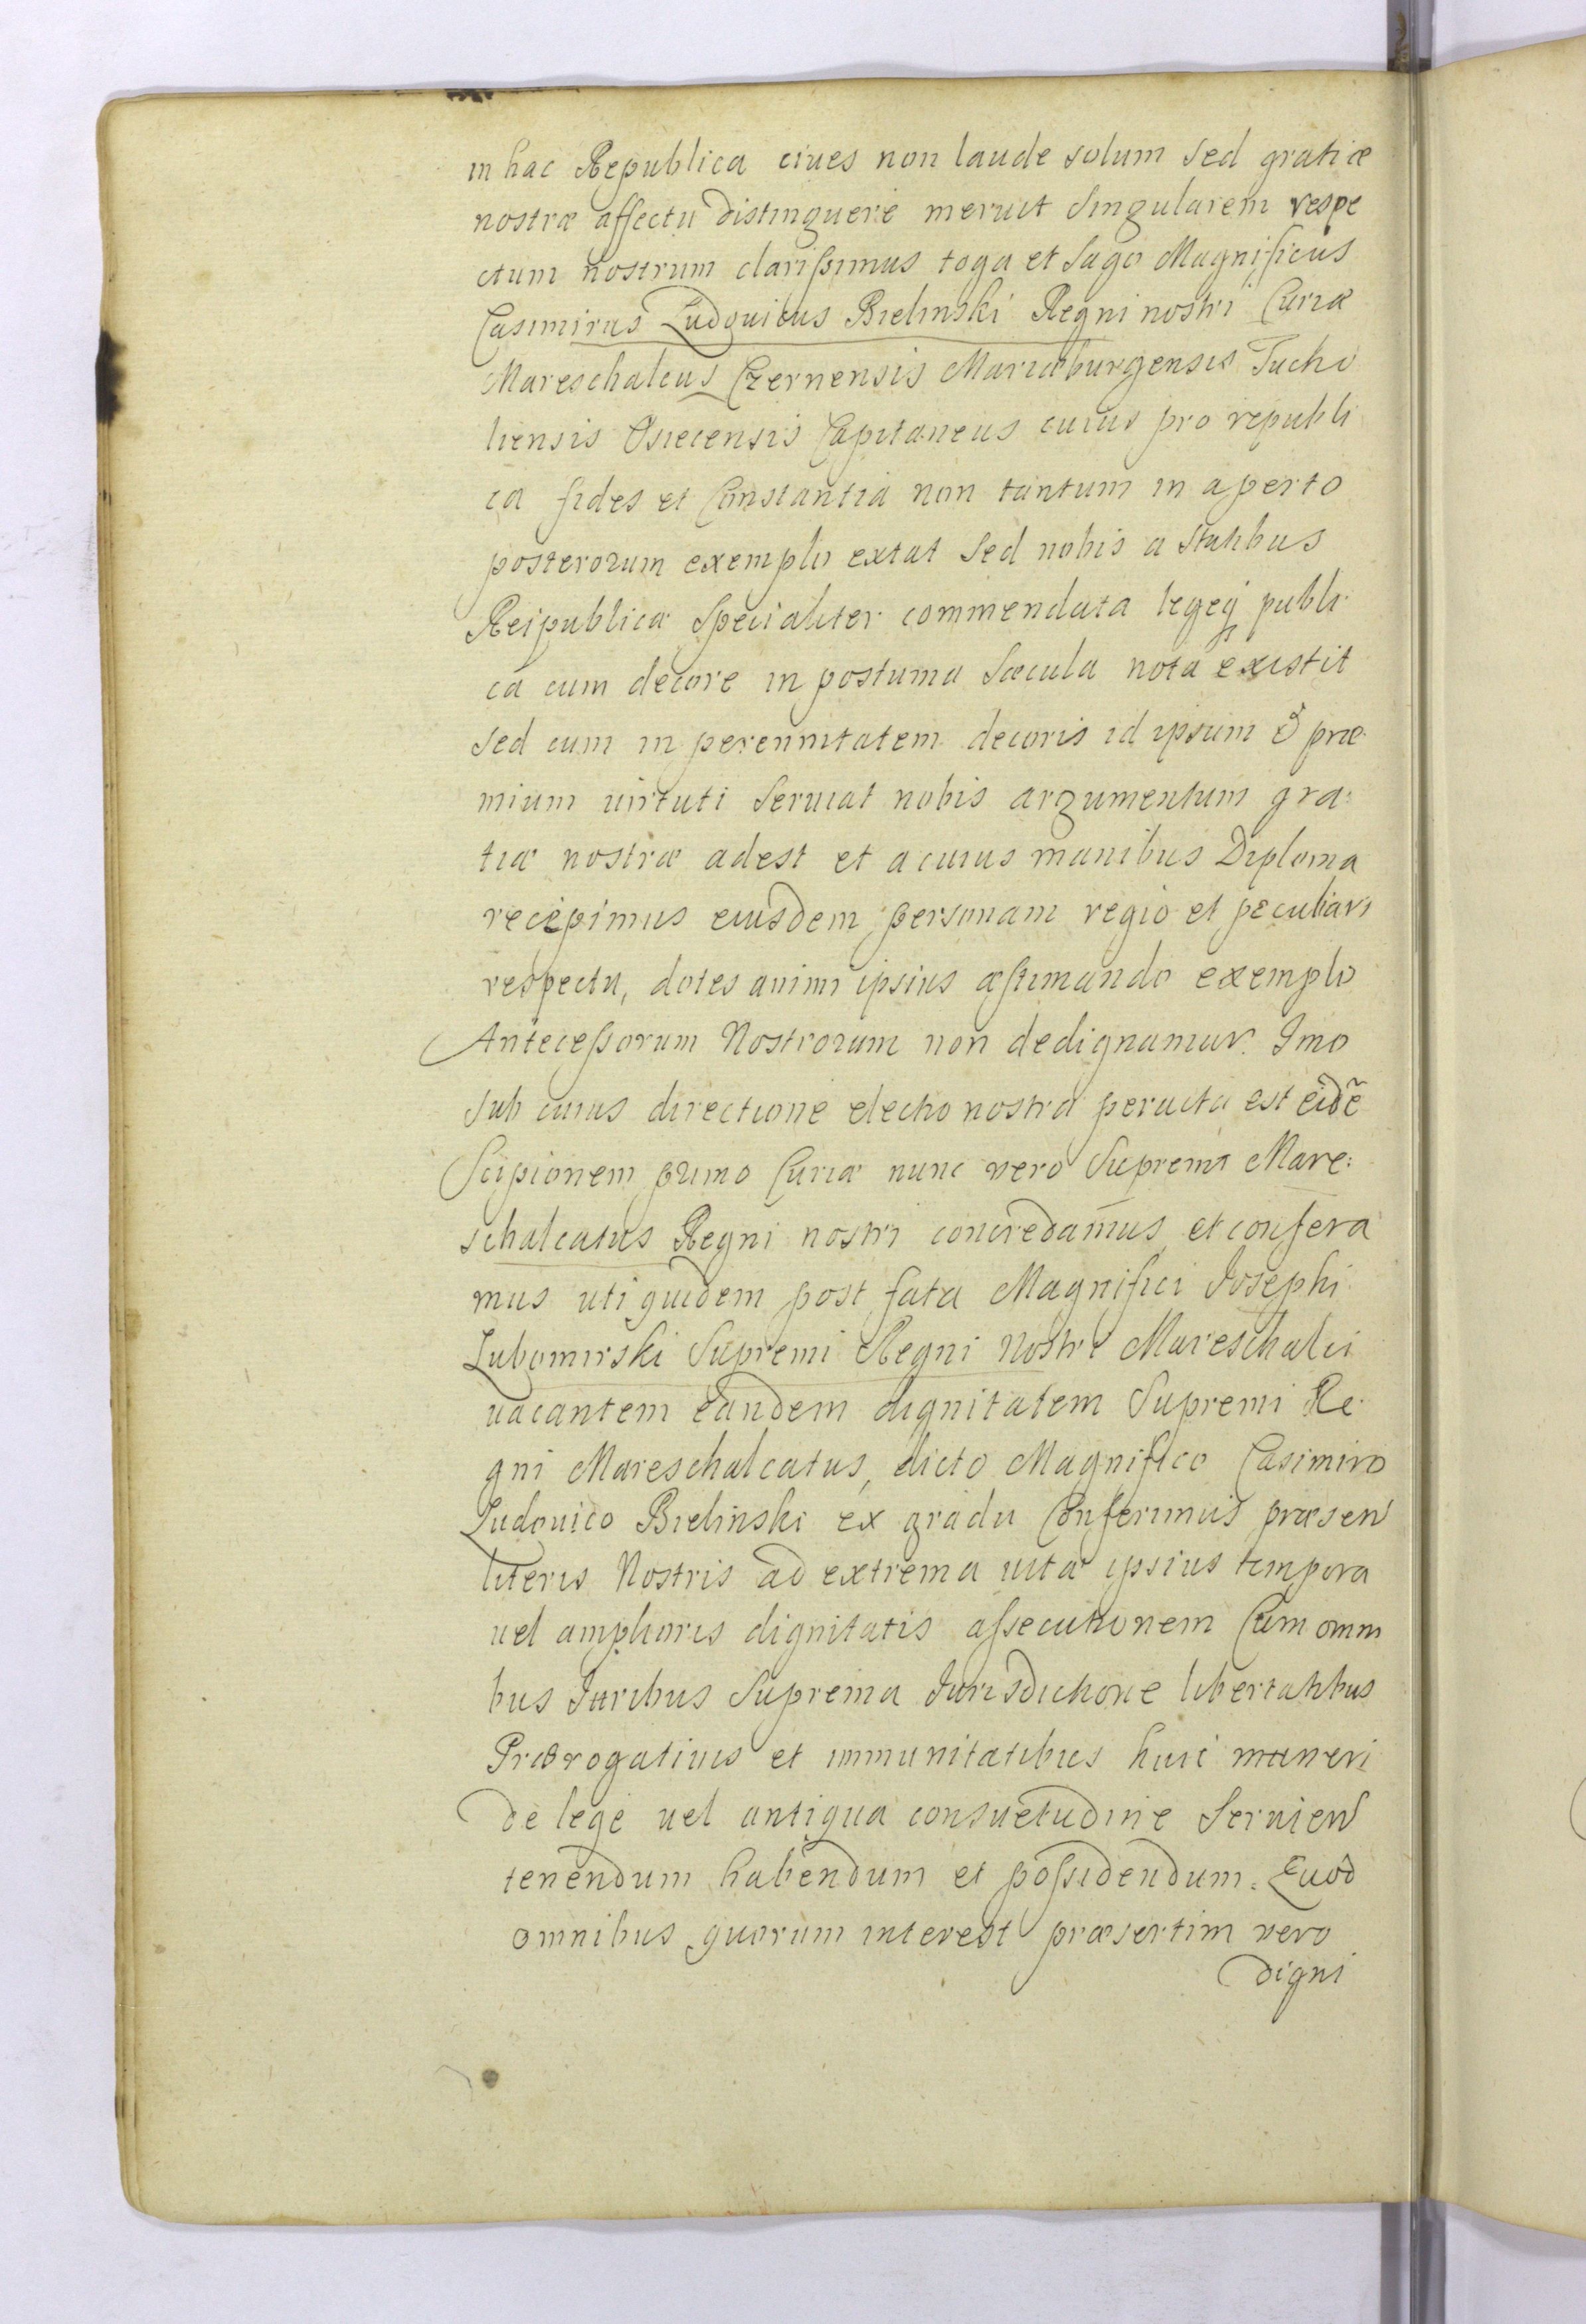 in hac Republica ciues non laude solum sed gratiæ
nostræ affectu distinguere meruit singularem respe
ctum nostrum clarissimus toga et sago Magnificus
Casimirus Ludouicus Bielinski Regni nostri Curiæ
Mareschalcus Czernensis Mariæburgensis Tucho
liensis Osiecensis Capitaneus cuius pro republi
ca fides et Constantia non tantum in aperto
posterorum exemplo extat sed nobis a Statibus
Reipublicæ specialiter commendata legeq publi
ca cum decore in postuma sæcula nota existit
sed cum in perennitatem decoris id ipsum & præ
mium uirtuti seruiat nobis argumentum gra:
tiæ nostræ adest et a cuius manibus Diploma
recepimus eiusdem personam regio et peculiari
respectu, dotes animi ipsius æstimando exemplo
Antecessorum Nostrorum non dedignamur. Imo
sub cuius directione electio nostra peracta est eidẽ
Scipionem primo Curiæ nunc vero Supremi Mare:
schalcatus Regni nostri concredamus, et confera
mus uti quidem post fata Magnifici Josephi
Lubomirski Supremi Regni Nostri Mareschalci
uacantem eandem dignitatem Supremi Re
gni Mareschalcatus, dicto Magnifico Casimiro
Ludouico Bielinski ex gradu Conferimus præsen
literis Nostris ad extrema uitæ ipsius tempora
uel amplioris dignitatis assecutionem Cum omni
bus Juribus Suprema Jurisdictione libertatibus
Prærogatiuis et immunitatibus huic muneri
de lege uel antiqua consuetudine seruien
tenendum habendum et possidendum. Quod
omnibus quorum interest præsertim vero
digni